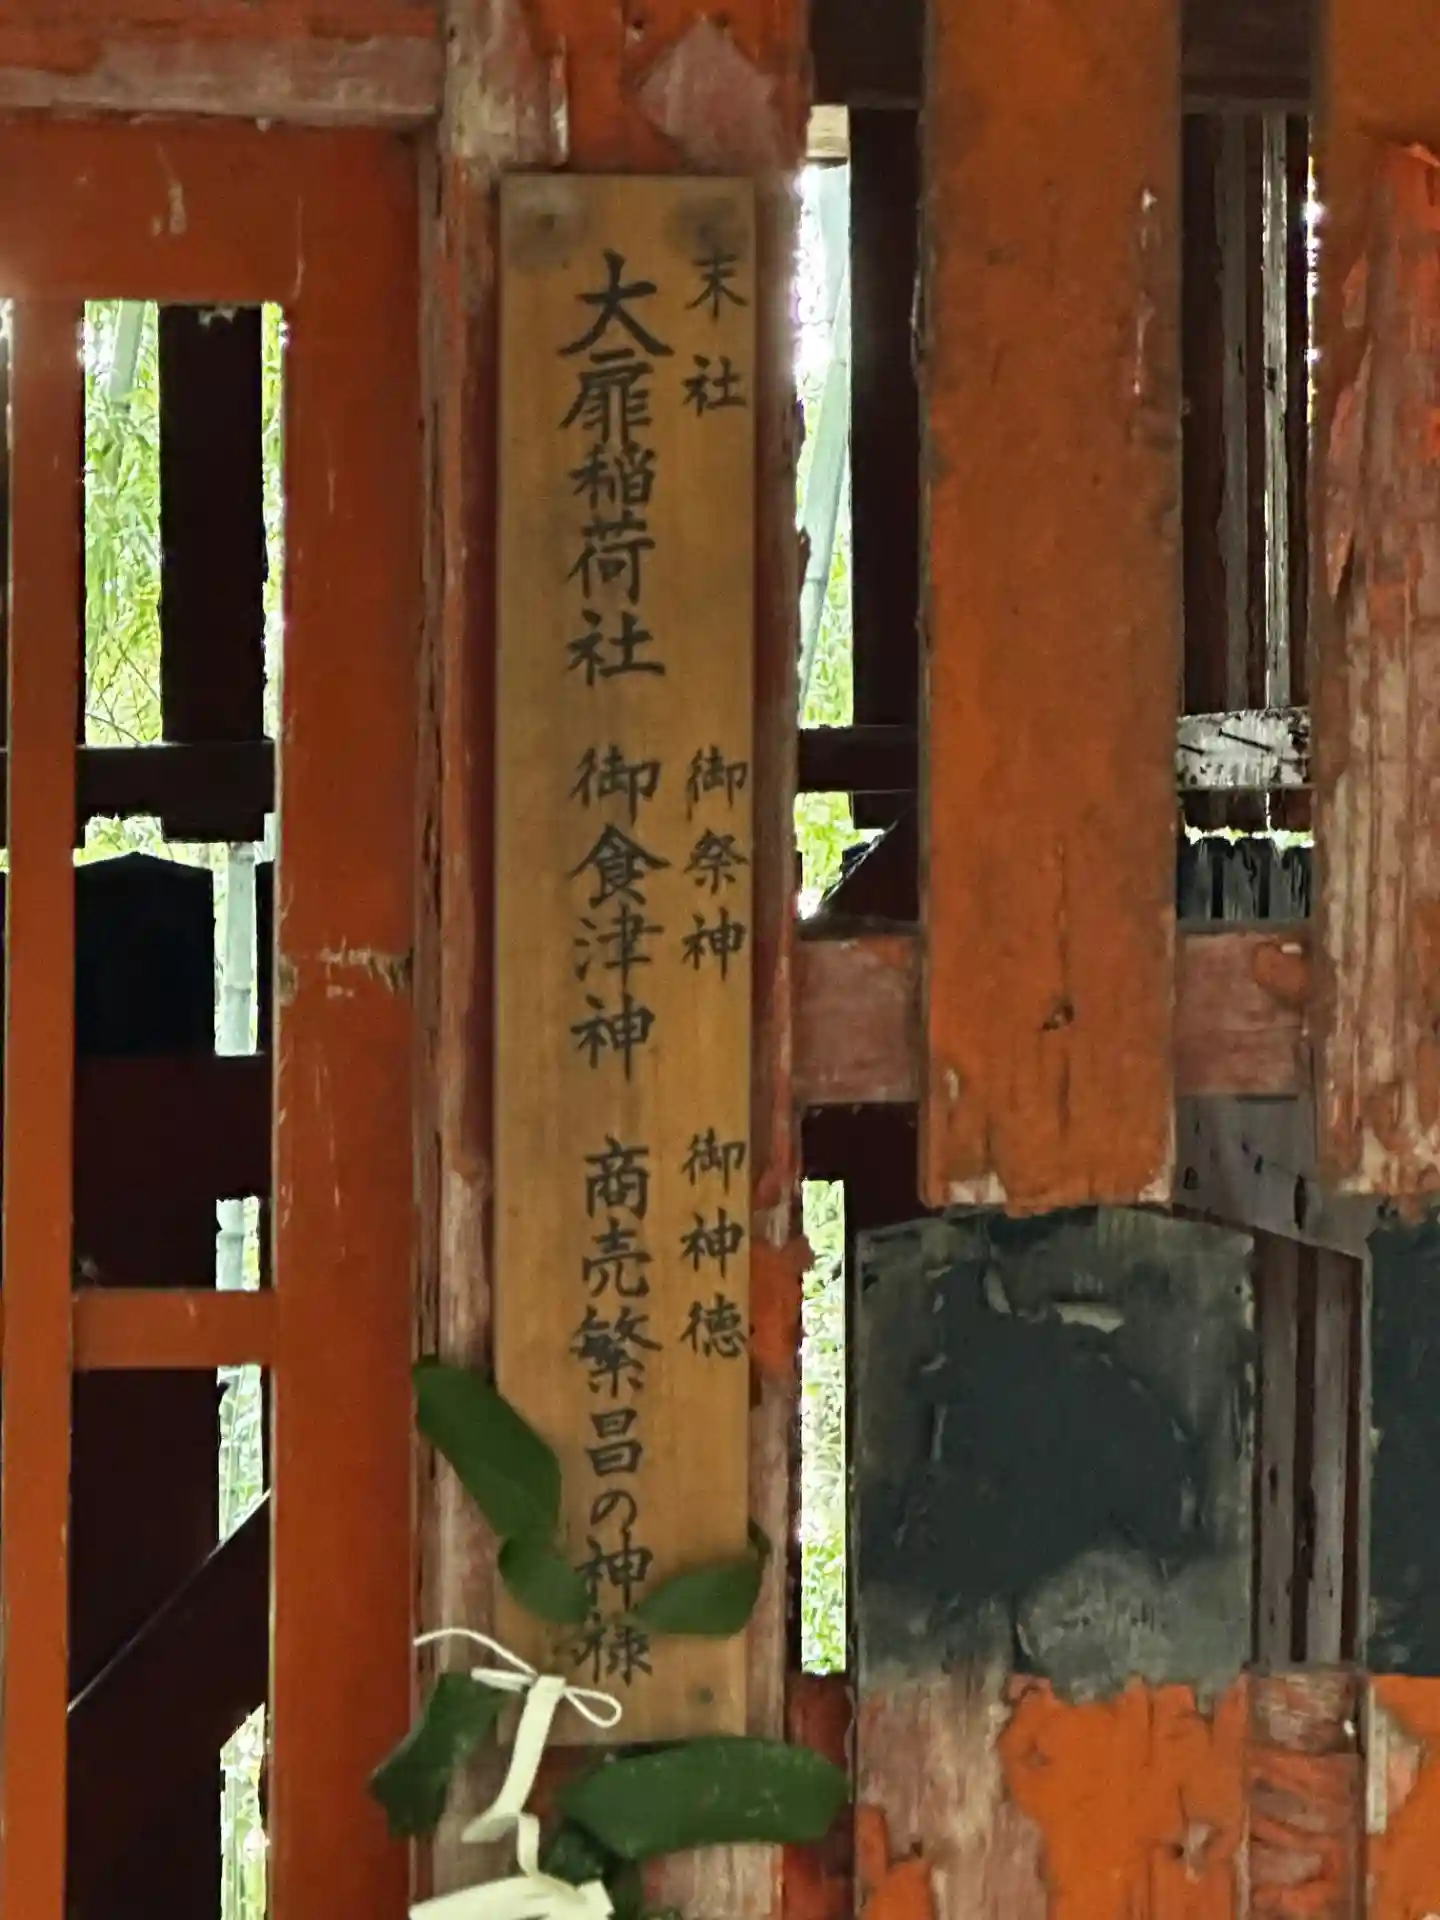 末社　御祭神　御神徳
大扉稲荷社　御食津神　商売繁昌の神様